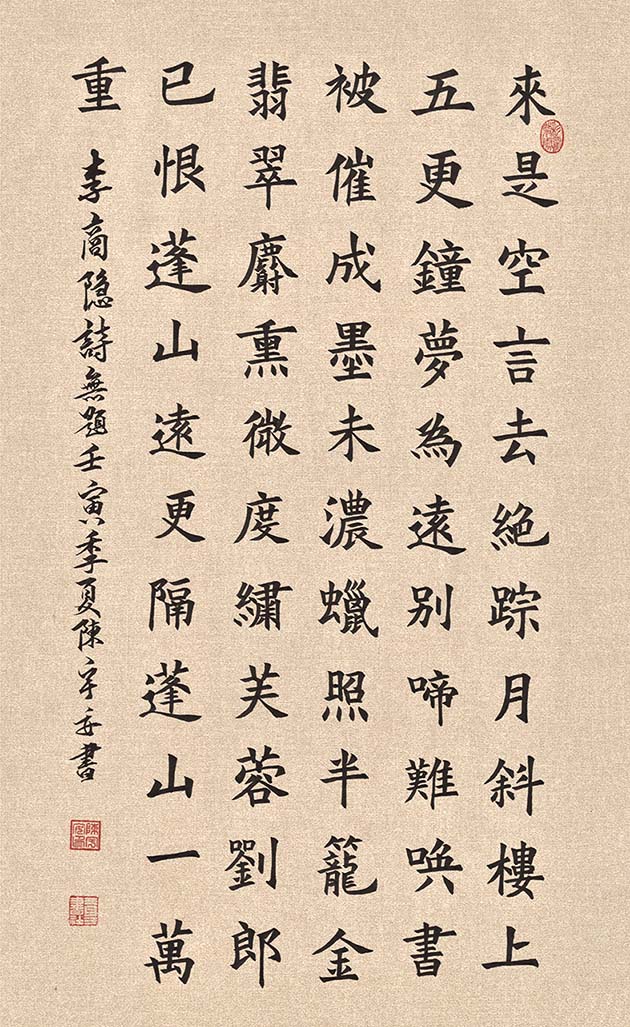 來是空言去絶踪月斜樓上
五更鐘夢為遠別啼難唤書
被催成墨未濃蠟照半籠金
翡翠麝熏微度繡芙蓉劉郎
已恨蓬山遠更隔蓬山一萬
重 李商隐詩無題壬寅季夏陳宇安書